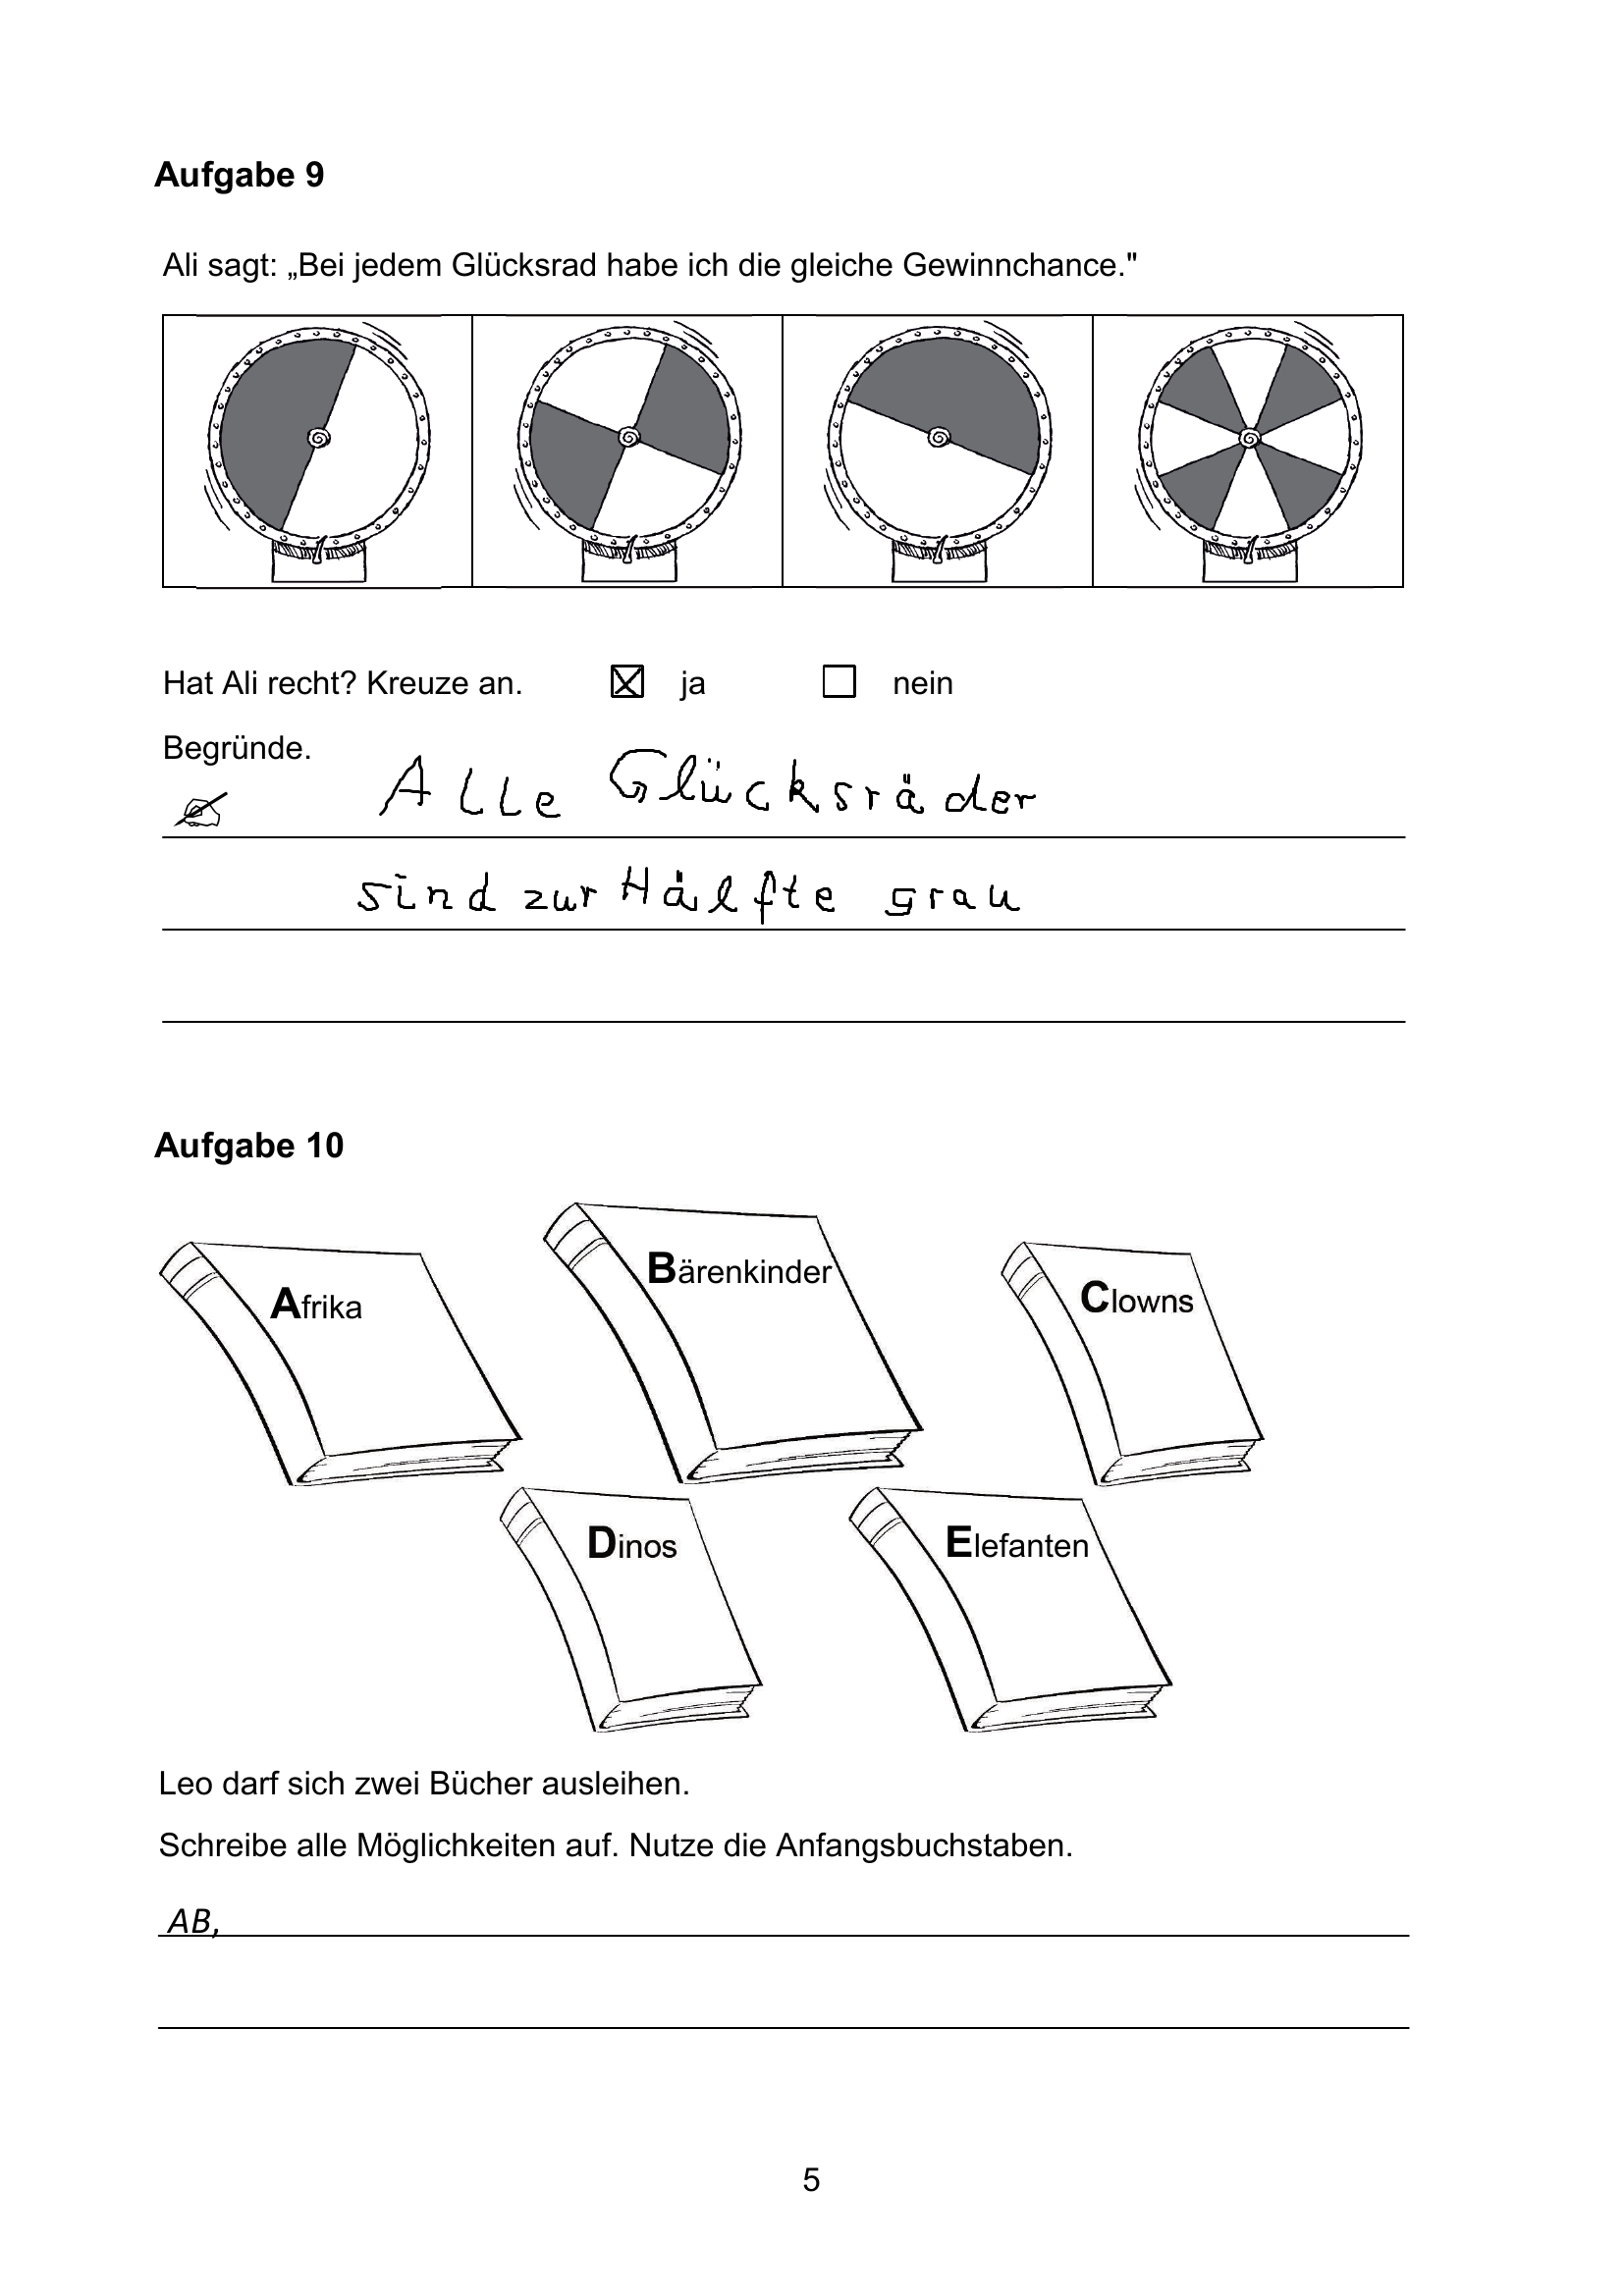 Aufgabe 9
Ali sagt: „Bei jedem Glücksrad habe ich die gleiche Gewinnchance."
Hat Ali recht? Kreuze an. ja nein
Begründe.
Alle Glücksräder
sind zur Hälfte grau
Aufgabe 10
Afrika
Bärenkinder
Clowns
Dinos
Elefanten
Leo darf sich zwei Bücher ausleihen.
Schreibe alle Möglichkeiten auf. Nutze die Anfangsbuchstaben.
AB,
5